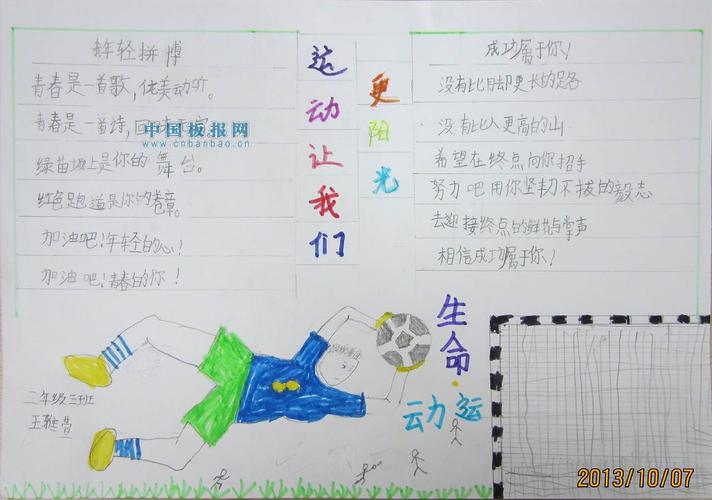 年轻拼博
青春是一首歌,优美动听。
青春是一首诗,回味无穷。
中国板报网
www.cnbanbao.cn
绿茵场上是你的舞台。
红色跑道是你的卷章。
加油吧!年轻的心!
加油吧!青春的你!
运动让我们
更阳光
成功属于你!
没有比脚更长的路
没有比人更高的山
希望在终点向你招手
努力吧用你坚韧不拔的毅志
去迎接终点的鲜花与掌声
相信成功属于你!
生命·
动运
二年级三班
王雅
2013/10/07